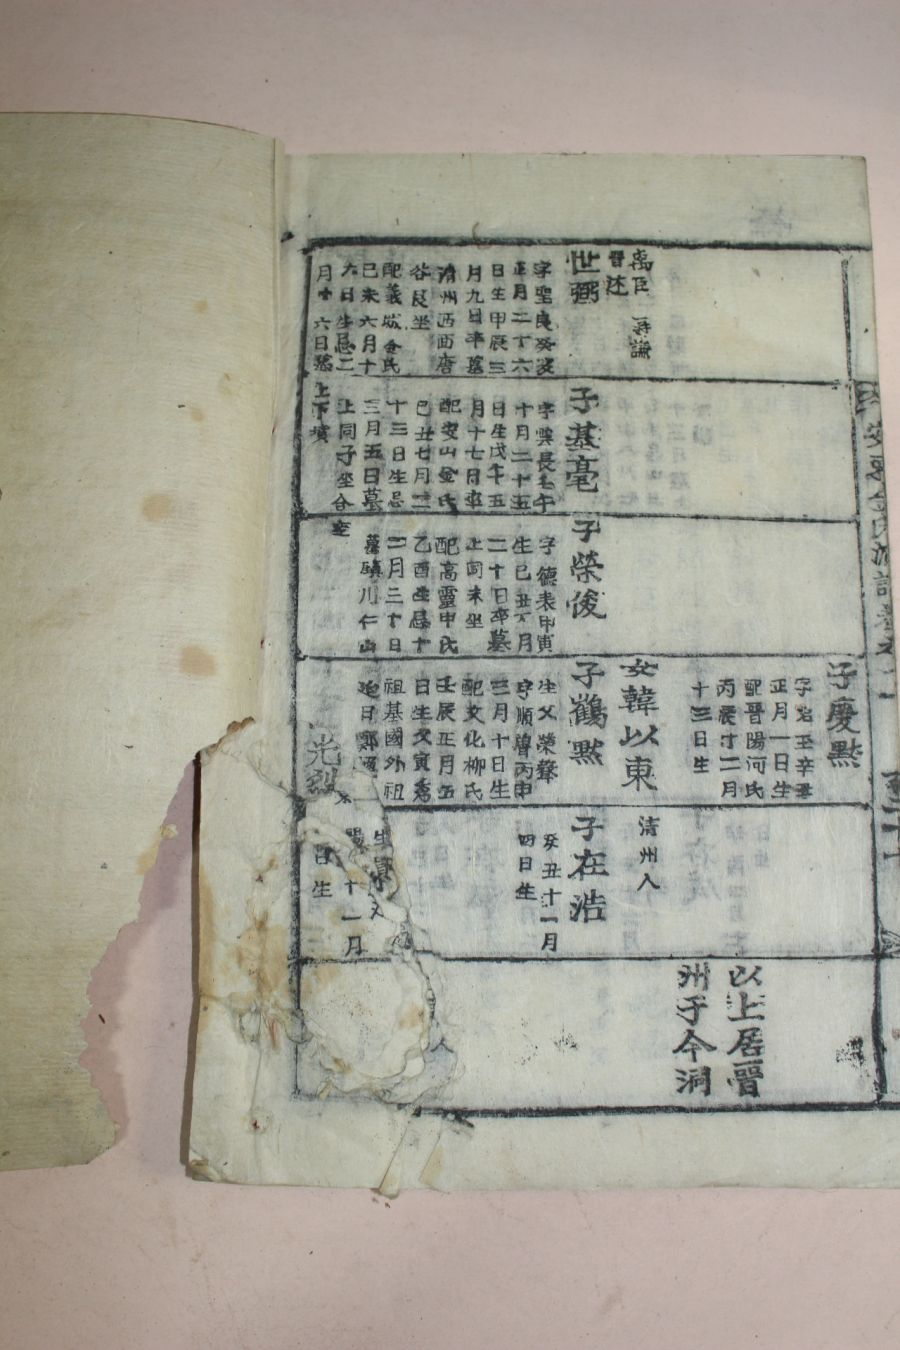 禹臣 再謙
晉述
世弼
字聖良癸亥
正月二十六
日生甲辰三
月九日卒墓
清州西面唐
谷艮坐
配義城金氏
己未六月十
六日生忌二
月十六日墓
上下墳
子基毫
字雲長壬午
十月二十五
日生戊午五
月十七日卒
配安山金氏
己丑七月二
十三日生忌
三月五日墓
上同子坐合窆
子榮俊
字德表甲寅
生己丑六月
二十日卒墓
上同未坐
配高靈申氏
乙酉生忌十
二月三十日
墓鎭川仁山
子慶黙
辛丑
正月一日生
配晉陽河氏
丙辰十二月
十三日生
女韓以東
子鶴黙
生父榮聲
字順曾丙申
三月十日生
配文化柳氏
壬辰正月五
日生父寅秀
祖基國外祖
迎日鄭
光烈
清州人
子在浩
癸丑十一月
四日生
生員
陽
十一月
日生
以上居晉
州于今洞
安東金氏派譜卷之二